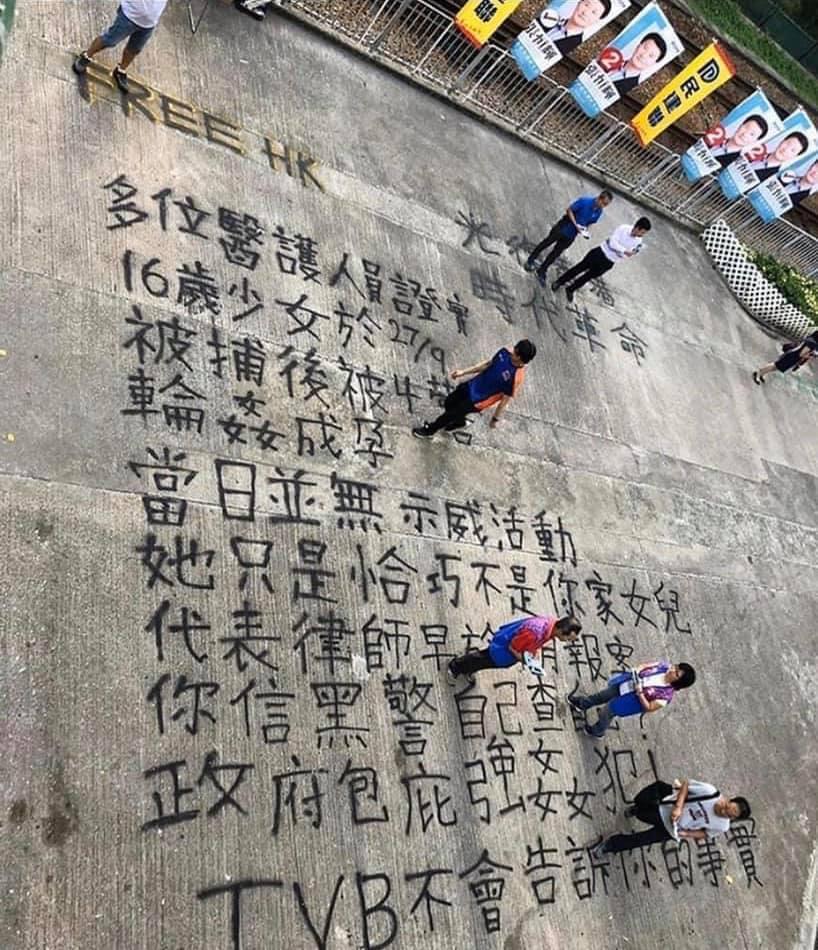 FREE HK
多位醫護人員證實
16歲少女於27/9
被捕後被
輪姦成孕
當日並無示威活動
她只是恰巧不是你家女兒
代表律師早於 報案
你信黑警自己查 ?
政府包庇強姦犯!
TVB不會告訴你的事實
光復
時代革命
民建聯
2
2
2
2